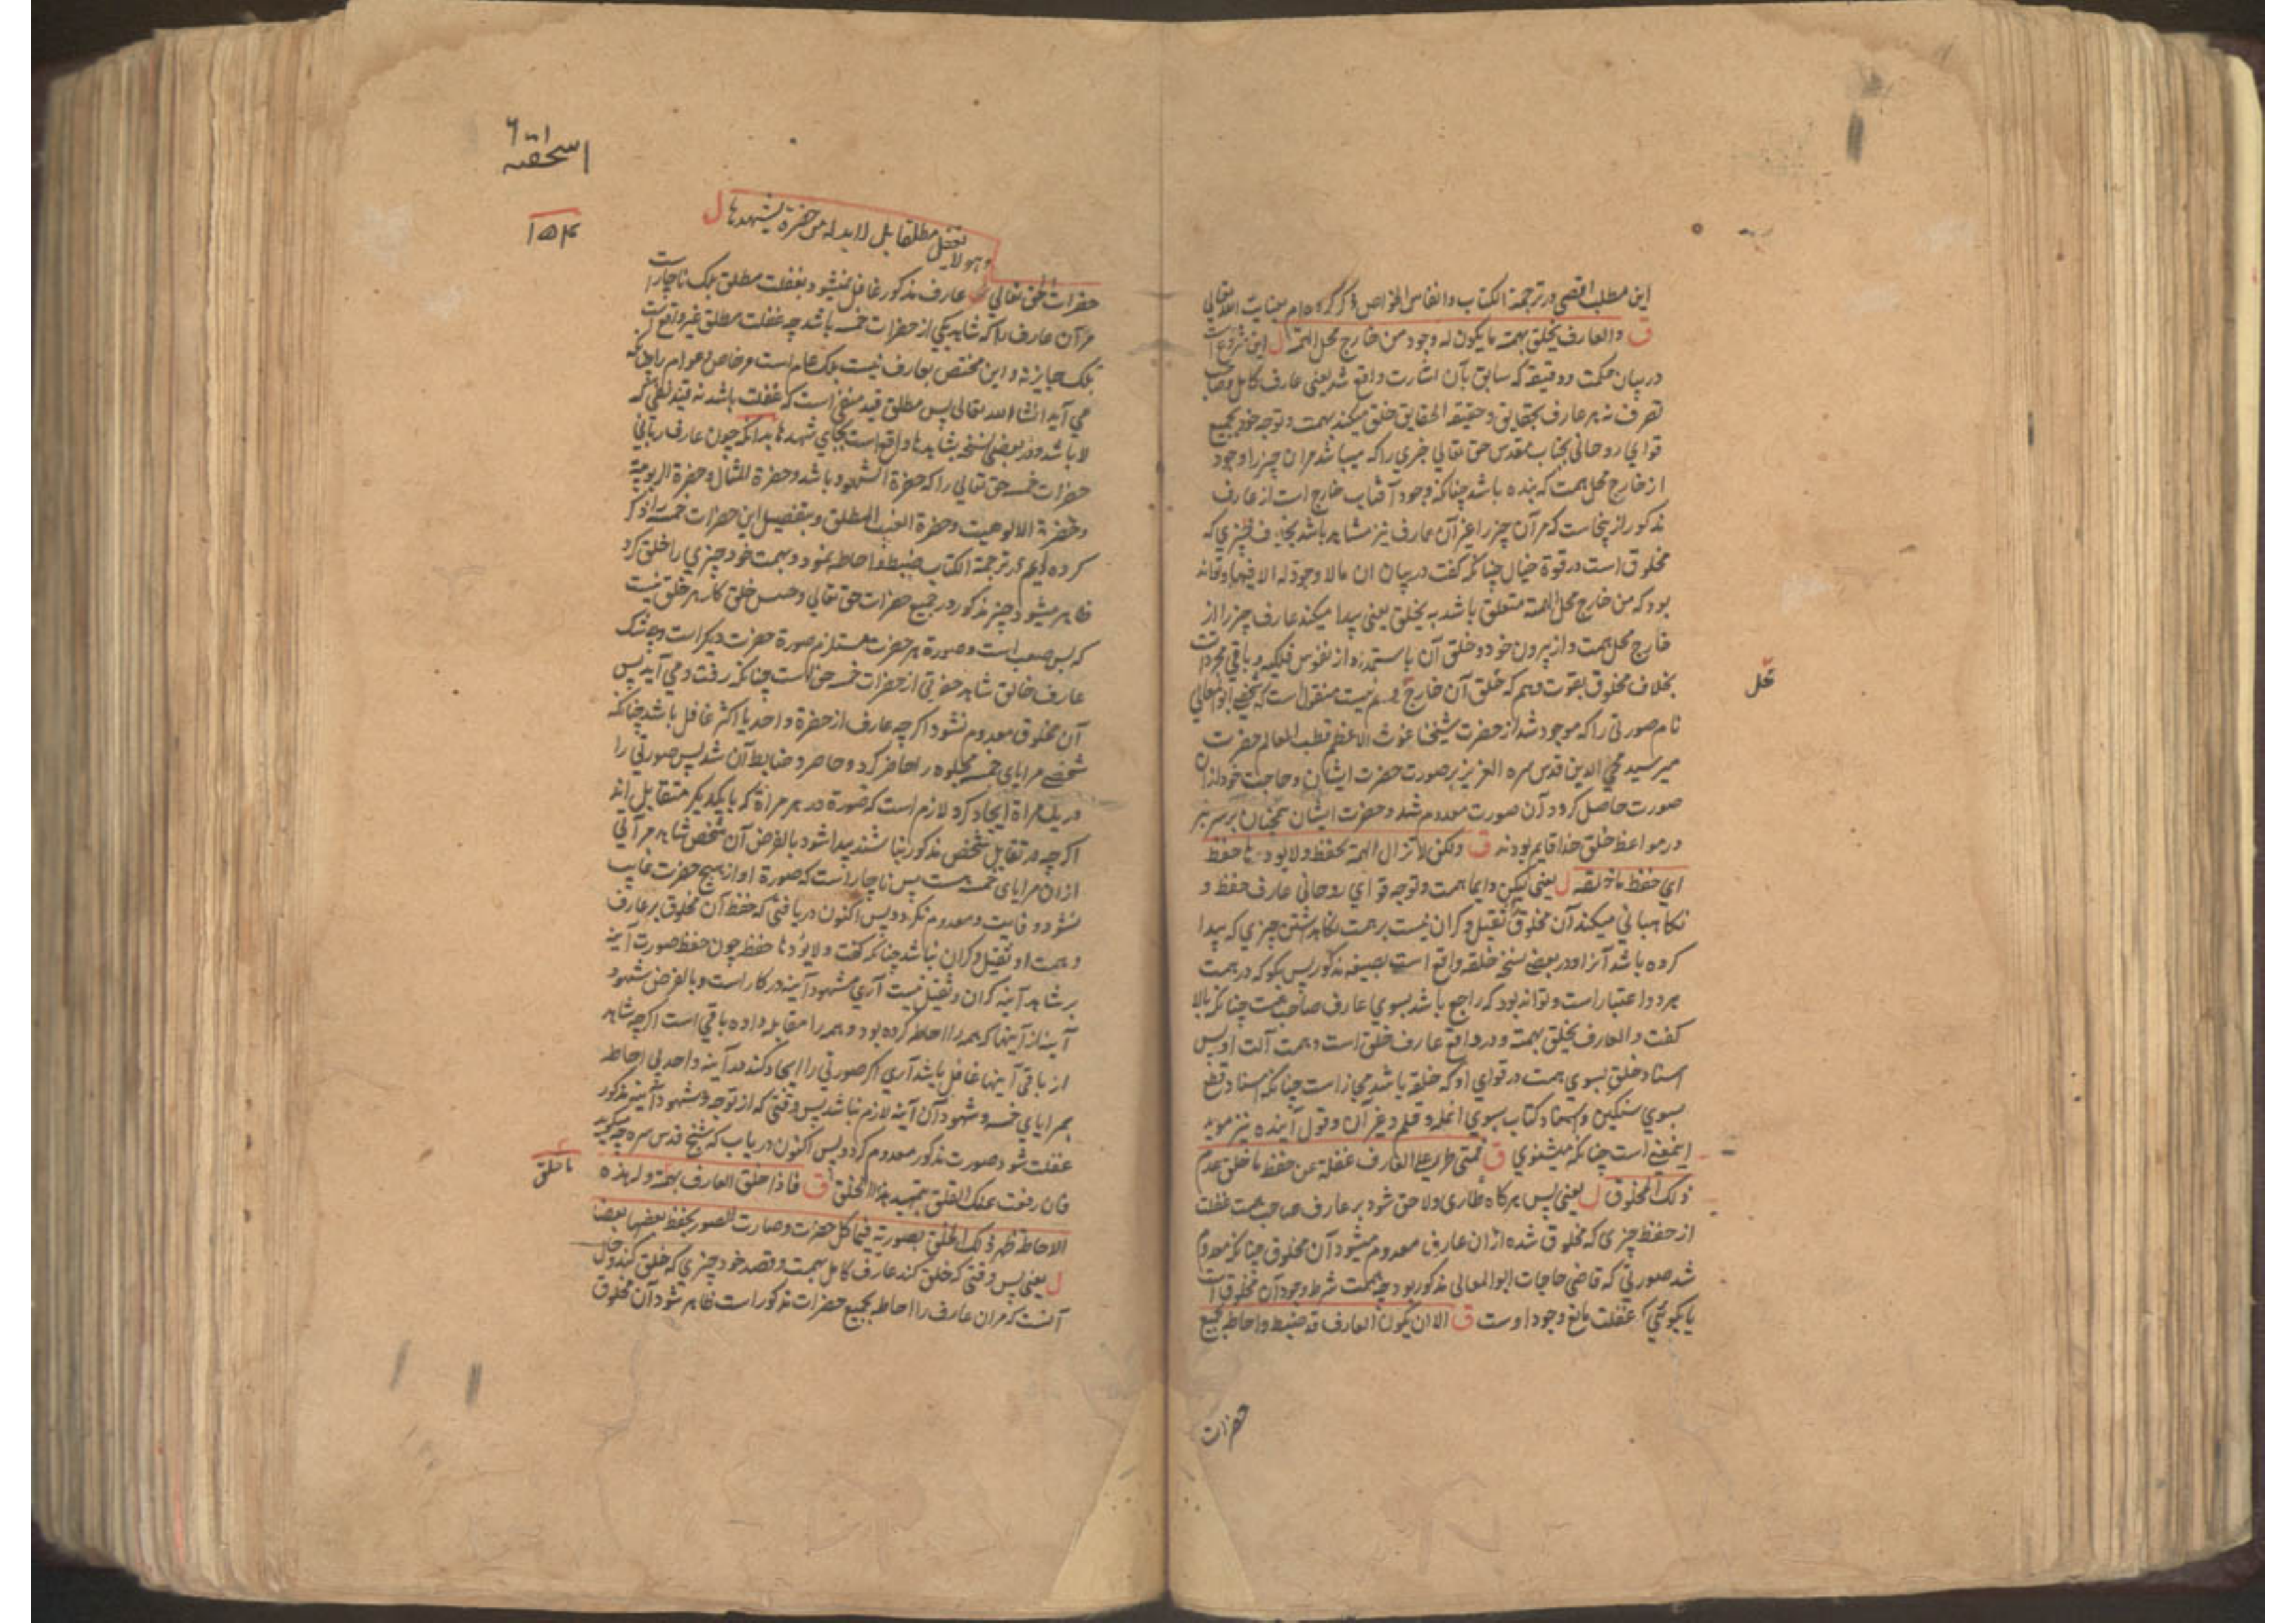 این مطلب اقصی در ترجمة الکتاب و انفاس الخواص ذکر کرده‌ام بعنایت الله تعالی
ق والعارف یخلق بهمته ما یکون له وجود من خارج محل الهمة ل این شروع است
در بیان حکمت و دقیقه که سابق بآن اشارت واقع شد یعنی عارف کامل و صاحب
تصرف نه هر عارف بحقایق و حقیقة الحقایق خلق میکند بهمت و توجه خود بجمیع
قوای روحانی بجناب مقدس حق تعالی چیزی را که میباشد مر آن چیز را وجود
از خارج محل همت که بنده باشد چنانکه وجود آفتاب خارج است از عارف
مذکور ازینجاست که مر آن چیز را غیر آن عارف نیز مشاهد باشد بخلاف چیزی که
مخلوق است در قوة خیال چنانکه گفت در بیان ان ما لا وجود له الا فیها و تواند
بود که من خارج محل الهمة متعلق باشد به یخلق یعنی پیدا میکند عارف چیز را از
خارج محل همت و از بیرون خود و خلق آن باستمداد از نفوس فلکیه و باقی مجردات
بخلاف مخلوق بقوت وهم که خلق آن خارج وهم نیست منقول است که شخصی ابوالمعالی
نام صورتی را که موجود شد از حضرت شیخنا غوث الاعظم قطب العالم حضرت
میر سید محی الدین قدس سره العزیز بر صورت حضرت ایشان و حاجت خود از آن
صورت حاصل کرد و آن صورت معدوم شد و حضرت ایشان همچنان بر سر منبر
در مواعظ خلق خدا قایم بودند ق ولکن لا تزال الهمة تحفظه ولا یودها حفظه
ای حفظ ما خلقه ل یعنی لیکن دایما همت و توجه قوای روحانی عارف حفظ و
نگاهبانی میکند آن مخلوق را ثقیل و گران نیست بر همت نگاهداشتن چیزی که پیدا
کرده باشد آنرا و در بعضی نسخ خلقه واقع است بصیغه مذکور پس بگو که در همت
هر دو اعتبار است و تواند بود که راجع باشد بسوی عارف صاحب همت چنانکه بالا
گفت والعارف یخلق بهمته و در واقع عارف خلق است و همت آلت او پس
اسناد خلق بسوی همت در قوای او که خلقه باشد مجاز است چنانکه اسناد قطع
بسوی سکین و اسناد کتاب بسوی انمله و قلم و غیر آن و قول آینده نیز موید
اینمعنی است چنانکه میشنوی ق فمتی طرأ علی العارف غفلة عن حفظ ما خلق عدم
ذلک المخلوق ل یعنی پس هرگاه طاری و لاحق شود بر عارف صاحب همت غفلت
از حفظ چیزی که مخلوق شده از ان عارف معدوم میشود آن مخلوق چنانکه معدوم
شد صورتی که قاضی حاجات ابوالمعالی مذکور بود چه همت شرط وجود آن مخلوق است
یا بگوئی که غفلت مانع وجود اوست ق الا ان یکون العارف قد ضبط و احاط جمیع
حضرات
اسحقیة
۱۵۴
وهو لا یغفل مطلقا بل لا بد له من حضرة یشهدها ل
حضرات الحق تعالی عارف مذکور غافل نمیشود بغفلت مطلق بلکه ناچار است
مر آن عارف را که شاهد یکی از حضرات خمسه باشد چه غفلت مطلق غیر واقع است
بلکه جایز نه و این مختص بعارف نیست بلکه عام است مر خاص و عوام را چنانکه
می آید انشاء الله تعالی پس مطلق قید منفی است که غفلت باشد نه قید نفی که
لا باشد و در بعضی نسخه یشاهدها واقع است بجای یشهدها بدانکه چون عارف ربانی
حضرات خمسه حق تعالی را که حضرة الشهود باشد و حضرة المثال و حضرة الربوبیة
و حضرة الالوهیت و حضرة الغیب المطلق و بتفصیل این حضرات خمسه را ذکر
کرده‌ایم در ترجمة الکتاب ضبط و احاطه نمود و بهمت خود چیزی را خلق کرد
ظاهر میشود چیز مذکور در جمیع حضرات حق تعالی و حبس خلق کار هر خلق نیست
که بس صعب است و صورة هر حضرت مستلزم صورة حضرت دیگر است و بیشک
عارف خالق شاهد حضرتی از حضرات خمسه حق است چنانکه رفت و می آید پس
آن مخلوق معدوم نشود اگر چه عارف از حضرة واحد یا اکثر غافل باشد چنانکه
شخصی مرایای خمسه مجلوه را حاضر کرد و حاصر و ضابط آن شد پس صورتی را
در یک مراة ایجاد کرد لازم است که صورة در هر مراة که با یکدیگر متقابل اند
اگر چه در تقابل شخص مذکور نباشند پیدا شود بالفرض آن شخص شاهد مرآتی
از ان مرایای خمسه هست پس ناچار است که صورة او از هیچ حضرت غایب
نشود و فایت و معدوم نگردد پس اکنون دریافتی که حفظ آن مخلوق بر عارف
و همت او ثقیل و گران نباشد چنانکه گفت ولا یودها حفظه چون حفظ صورت آینه
بر شاهد آینه گران و ثقیل نیست آری شهود آینه در کار است و بالفرض شهود
آینه از آینها که همه را احاطه کرده بود و همه را مقابله داده باقی است اگر چه شاهد
از باقی آینها غافل باشد آری اگر صورتی را ایجاد کند در آینه واحد بی احاطه
بمرایای خمسه و شهود آن آینه لازم نباشد پس وقتی که از توجه و شهود آئینه مذکور
غفلت شود صورت مذکور معدوم گردد پس اکنون دریاب که شیخ قدس سره چه میگوید
فان رفعت عنک القلق بتمهید هذا الخلق ق فاذا خلق العارف بهمته وله هذه
ما خلق
الاحاطة ظهر ذلک الخلق بصورته فی کل حضرت و صارت الصور یحفظ بعضها بعضا
ل یعنی پس وقتی که خلق کند عارف کامل بهمت و قصد خود چیزی که خلق کند و حال
آنست که مر آن عارف را احاطه بجمیع حضرات مذکور است ظاهر شود آن مخلوق